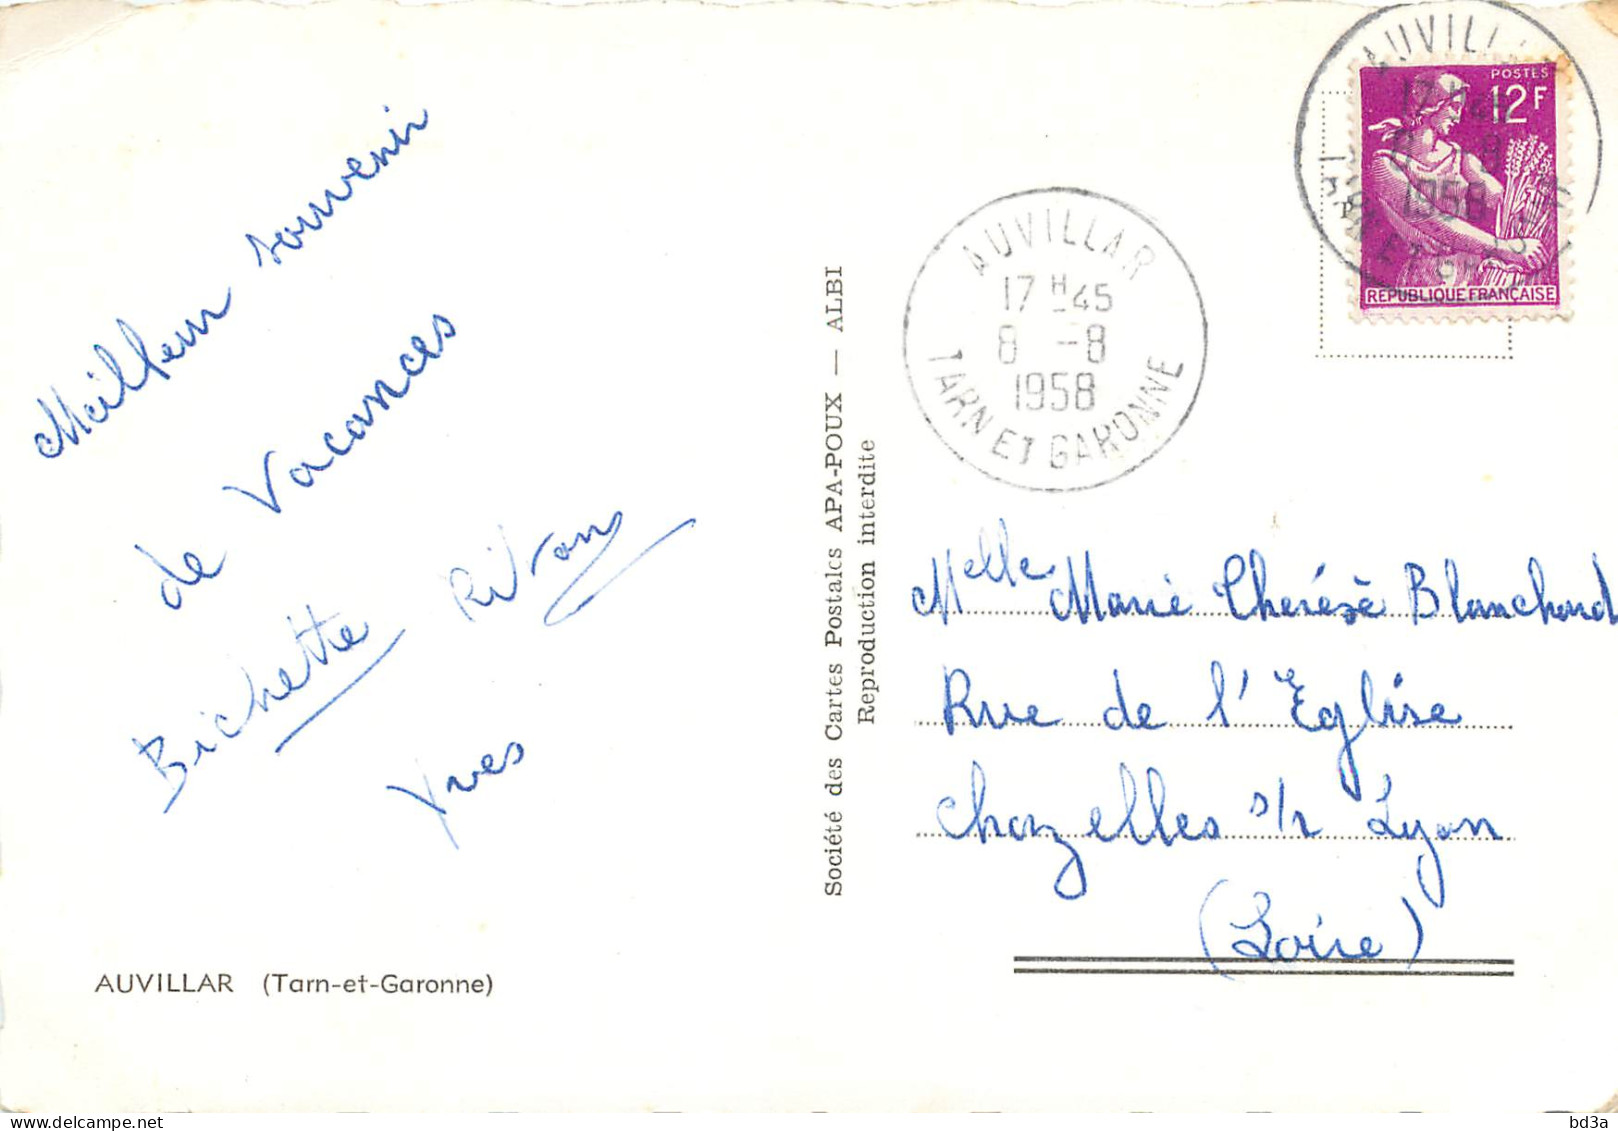 Meilleur souvenir
de Vacances
Bichette
Yves
AUVILLAR (Tarn-et-Garonne)
Société des Cartes Postales APA-POUX — ALBI
Reproduction interdite
AUVILLAR
17 H 45
8 -8
1958
TARN ET GARONNE
POSTES
12F
REPUBLIQUE FRANÇAISE
Melle Marie Thérèse Blanchard
Rue de l'Eglise
Chazelles s/r Lyon
(Loire)
delcampe.net
bd3a